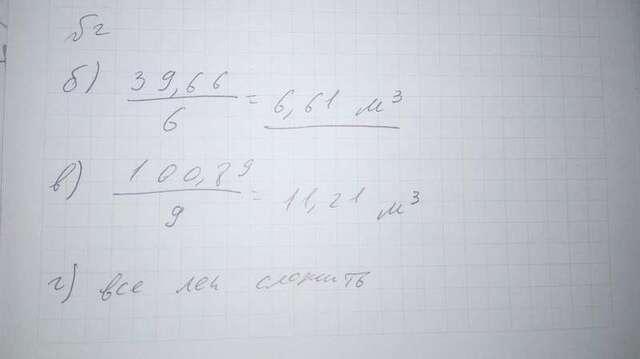 б) 39,66 / 6 = 6,61 м³
в) 100,89 / 9 = 11,21 м³
г) все сложить